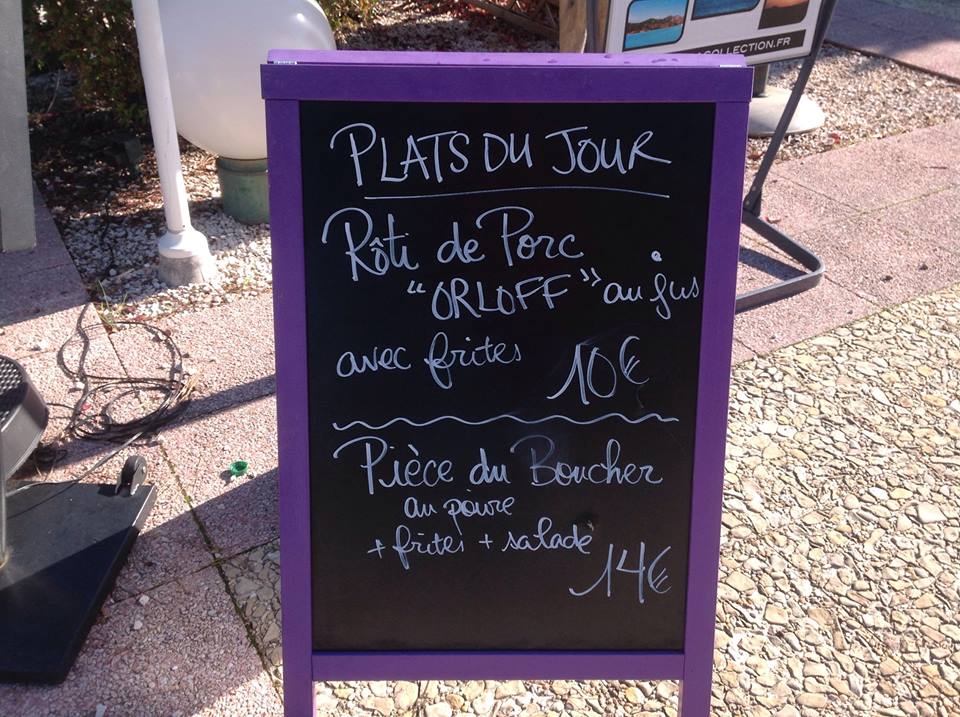 COLLECTION.FR
PLATS DU JOUR
Rôti de Porc
"ORLOFF" au jus
avec frites 10€
Pièce du Boucher
au poivre
+ frites + salade
14€